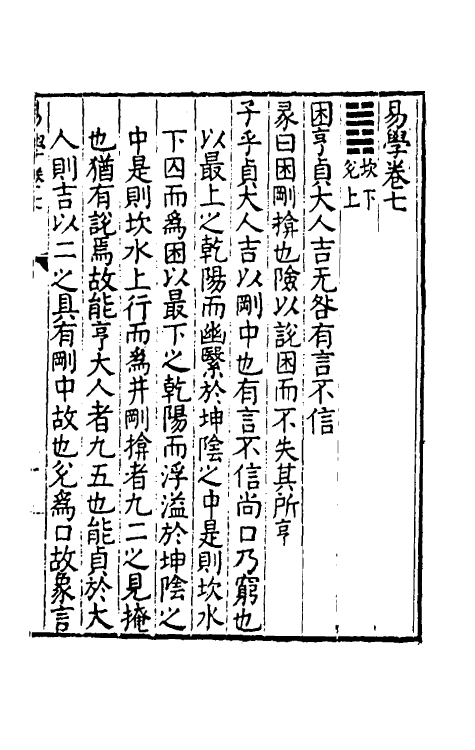 易學卷七
坎下
兌上
困亨貞大人吉无咎有言不信
彖曰困剛揜也險以說困而不失其所亨
子乎貞大人吉以剛中也有言不信尚口乃窮也
以最上之乾陽而幽繫於坤陰之中是則坎水
下囚而為困以最下之乾陽而浮溢於坤陰之
中是則坎水上行而為井剛揜者九二之見掩
也猶有說焉故能亨大人者九五也能貞於大
人則吉以二之具有剛中故也兌為口故象言